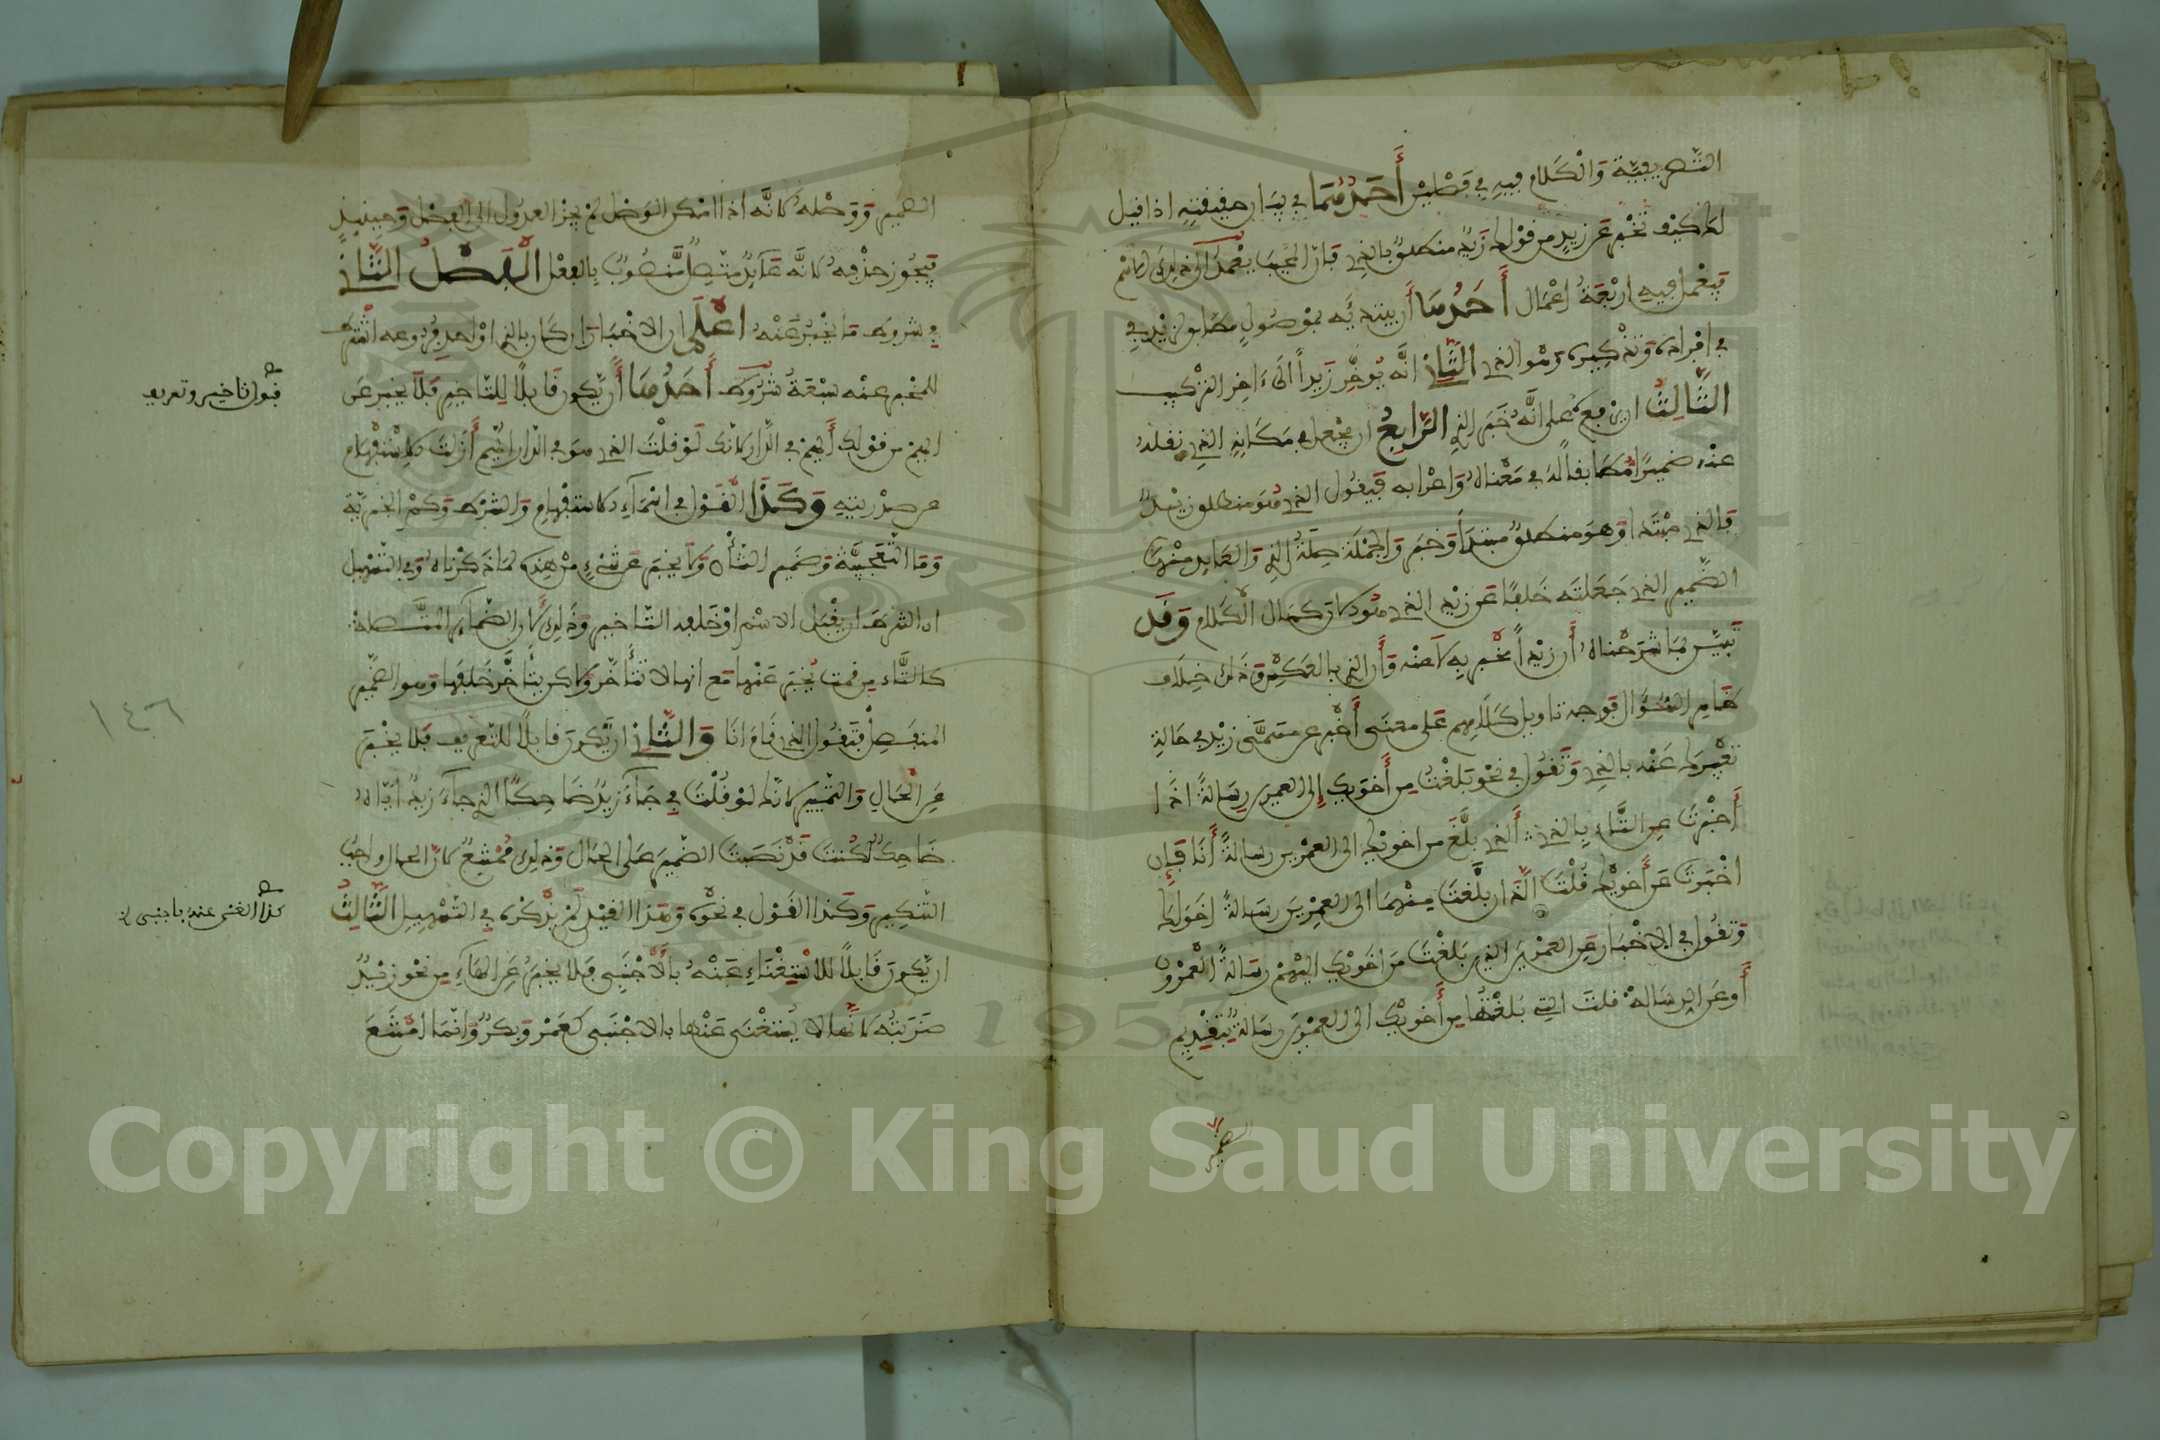 التصريفية والكلام فيه في فصلين أحدهما في بيان حقيقته اذا قيل
لك كيف تخبر عن زيد من قولك زيد منطلق بالذي فان المجيب يعمد الى ذلك الكلام
فيعمل فيه اربعة اعمال أحدها أن يبتديه بموصول مطابق لزيد
في افراده وتذكيره وهو الذي الثاني انه يؤخر زيدا الى ءاخر التركيب
الثالث ان يرفعه على انه خبر الذي الرابع ان يجعل في مكانه الذي نقله
عنه ضميرا مطابقا له في معناه واعرابه فيقول الذي هو منطلق زيد
فالذي مبتدا وهو منطلق مبتدأ وخبر والجملة صلة الذي والعايد منها
الضمير الذي جعلته خلفا عن زيد الذي هو كان كمال الكلام وقد
تبين بما شرحناه أن زيدا مخبر به لا عنه وأن الذي بالعكس وذلك خلاف
ظاهر السؤال فوجه تاويل كلامهم على معنى أخبر عن مسمى زيد في حالة
تعبيرك عنه بالذي وتقول في نحو بلغت من أخويك إلى العمرين رسالة اذا
أخبرت عن التاء بالذي الذي بلغ من اخويك الى العمرين رسالة أنا فإن
اخبرت عن أخويك قلت اللذان بلغت منهما الى العمرين رسالة اخواك
وتقول في الاخبار عن العمرين الذين بلغت من اخويك اليهم رسالة العمرون
أو عن الرسالة قلت التي بلغتها من أخويك الى العمرين رسالة بتقديم
الضمير
الضمير ووصله لانه اذا امكن الوصل لم يجز العدول الى الفصل وحينيذ
فيجوز حذفه لانه عايد متصل منصوب بالفعل الفصل الثاني
في شروط ما يخبر عنه اعلم ان الاخبار ان كان بالذي او احد فروعه اشترط
للمخبر عنه سبعة شروط أحدها أن يكون قابلا للتاخير فلا يخبر عن
ايهم من قولك أيهم في الدار لانك لو قلت الذي هو في الدار ايهم أزلت الاستفهام
عن صدريته وكذا القول في اسماء الاستفهام والشرط وكم الخبرية
وما التعجبية وضمير الشأن ولا يخبر عن شيء من هذه لما ذكرناه وفي التسهيل
ان الشرط ان يقبل الاسم او خلفه التاخير وذلك لأن الضماير المتصلة
كالتاء من قمت يخبر عنها مع انها لا تتأخر ولاكن يتأخر خلفها وهو الضمير
المنفصل فتقول الذي قام انا والثاني ان يكون قابلا للتعريف فلا يخبر
عن الحال والتمييز لانك لو قلت في جاء زيد ضاحكا الذي جاء زيد اياه
ضاحك لكنت قد نصبت الضمير على الحال وذلك ممتنع لان الحال واجب
التنكير وكذا القول في نحوه وهذا القيد لم يذكره في التسهيل الثالث
ان يكون قابلا للاستغناء عنه بالاجنبي فلا يخبر عن الهاء من نحو زيد
ضربته لانها لا يستغنى عنها بالاجنبي كعمر وبكر وانما امتنع
قبول تاخير وتعريف
كذا الغنى عنه باجنبي
١٤٦
Copyright © King Saud University
1957